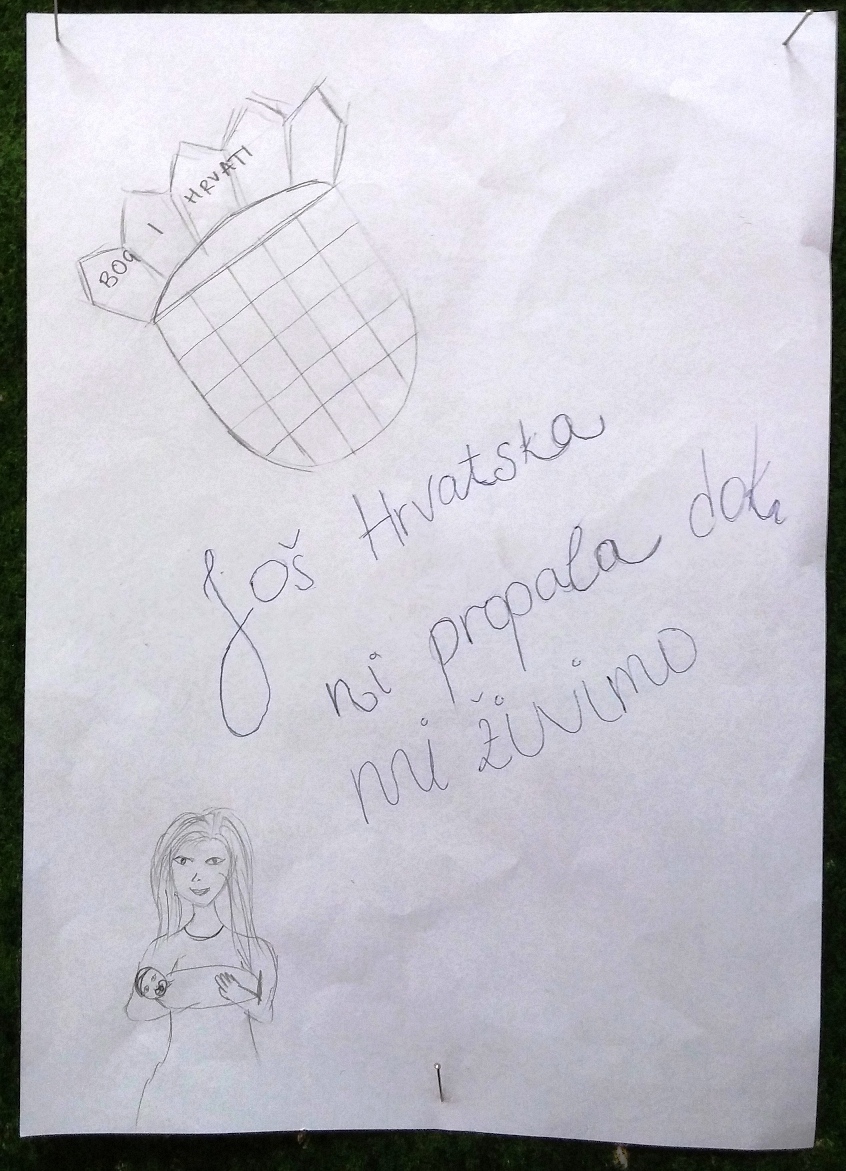 BOG I HRVATI
Još Hrvatska
ni propala dok
mi živimo